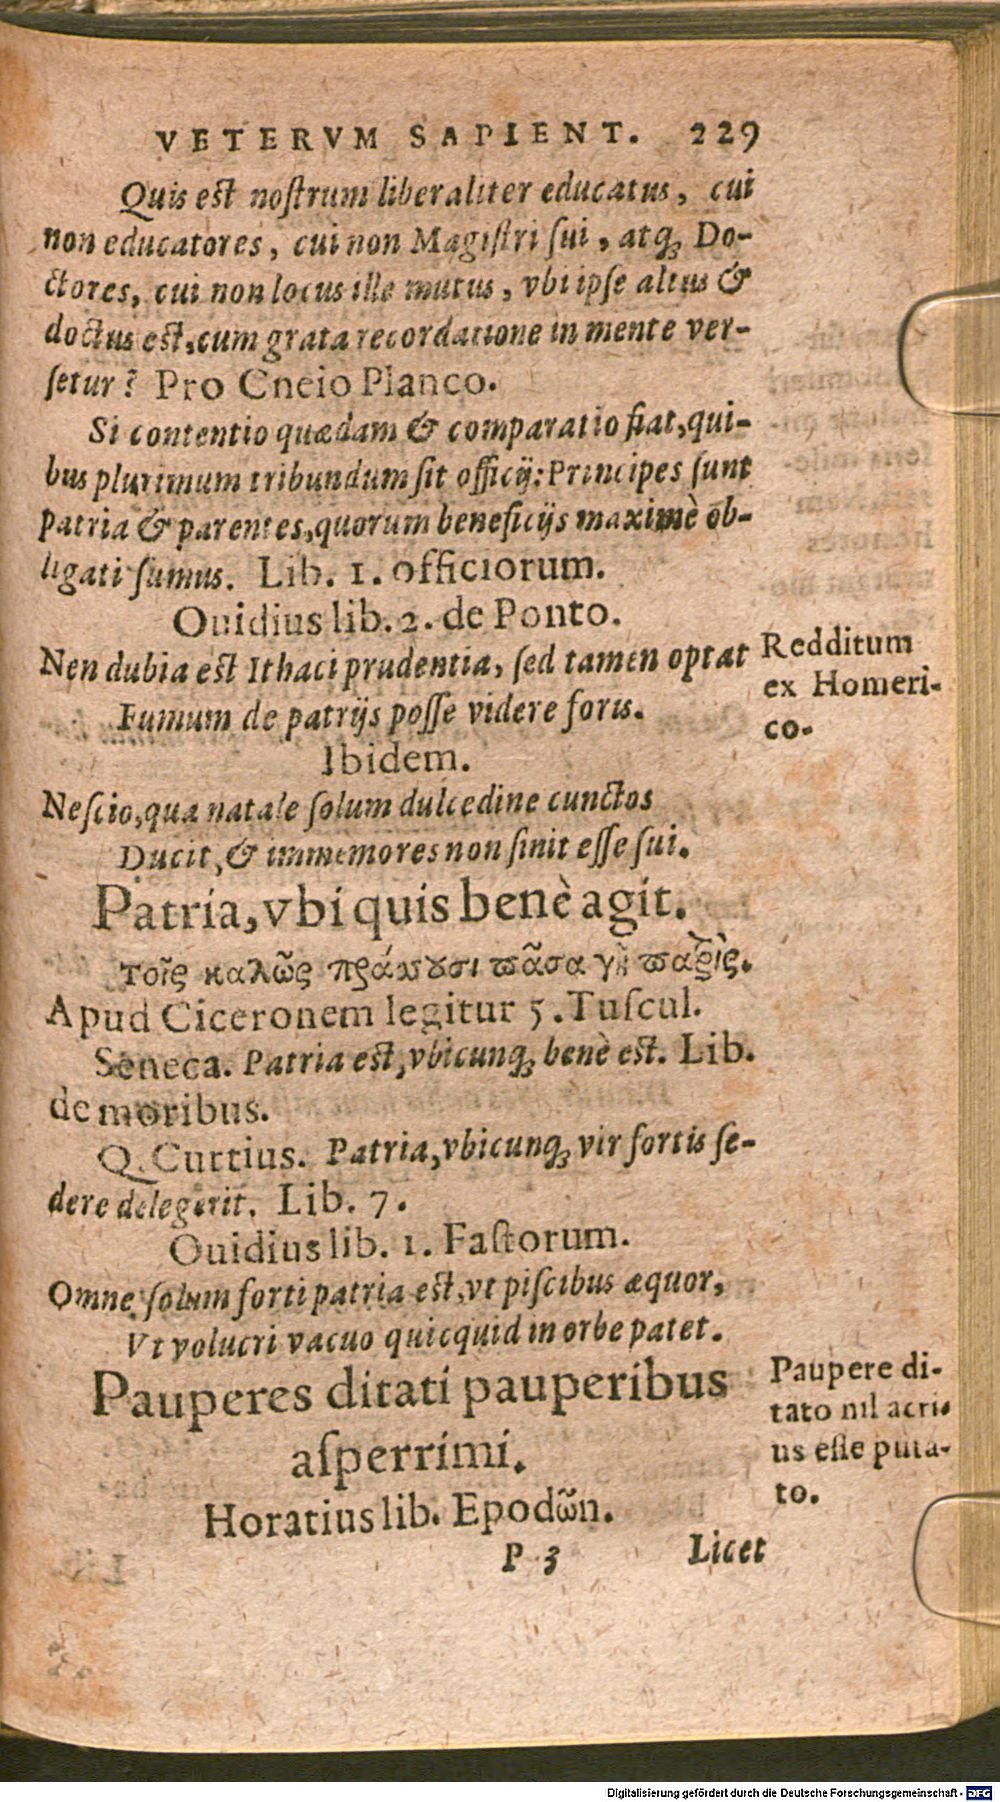 VETERVM SAPIENT. 229
Quis est nostrum liberaliter educatus, cui
non educatores, cui non Magistri sui, atq; Do-
ctores, cui non locus ille mutus, vbi ipse altus &
doctus est, cum grata recordatione in mente ver-
setur? Pro Cneio Planco.
Si contentio quædam & comparatio fiat, qui-
bus plurimum tribundum sit officij: Principes sunt
patria & parentes, quorum beneficijs maximè ob-
ligati sumus. Lib. 1. officiorum.
Ouidius lib. 2. de Ponto.
Nen dubia est Ithaci prudentia, sed tamen optat
Fumum de patrijs posse videre foris.
Redditum
ex Homeri-
co.
Ibidem.
Nescio, qua natale solum dulcedine cunctos
Ducit, & immemores non sinit esse sui.
Patria, vbi quis benè agit.
τοῖς καλῶς πράττουσι πᾶσα γῆ πατρίς.
Apud Ciceronem legitur 5. Tuscul.
Seneca. Patria est, vbicunq; benè est. Lib.
de moribus.
Q. Curtius. Patria, vbicunq; vir fortis se-
dere delegerit. Lib. 7.
Ouidius lib. 1. Fastorum.
Omne solum forti patria est, vt piscibus æquor,
Vt volucri vacuo quicquid in orbe patet.
Pauperes ditati pauperibus
asperrimi.
Paupere di-
tato nil acri-
us esse puta-
to.
Horatius lib. Epodῶn.
P 3 Licet
Digitalisierung gefördert durch die Deutsche Forschungsgemeinschaft - DFG